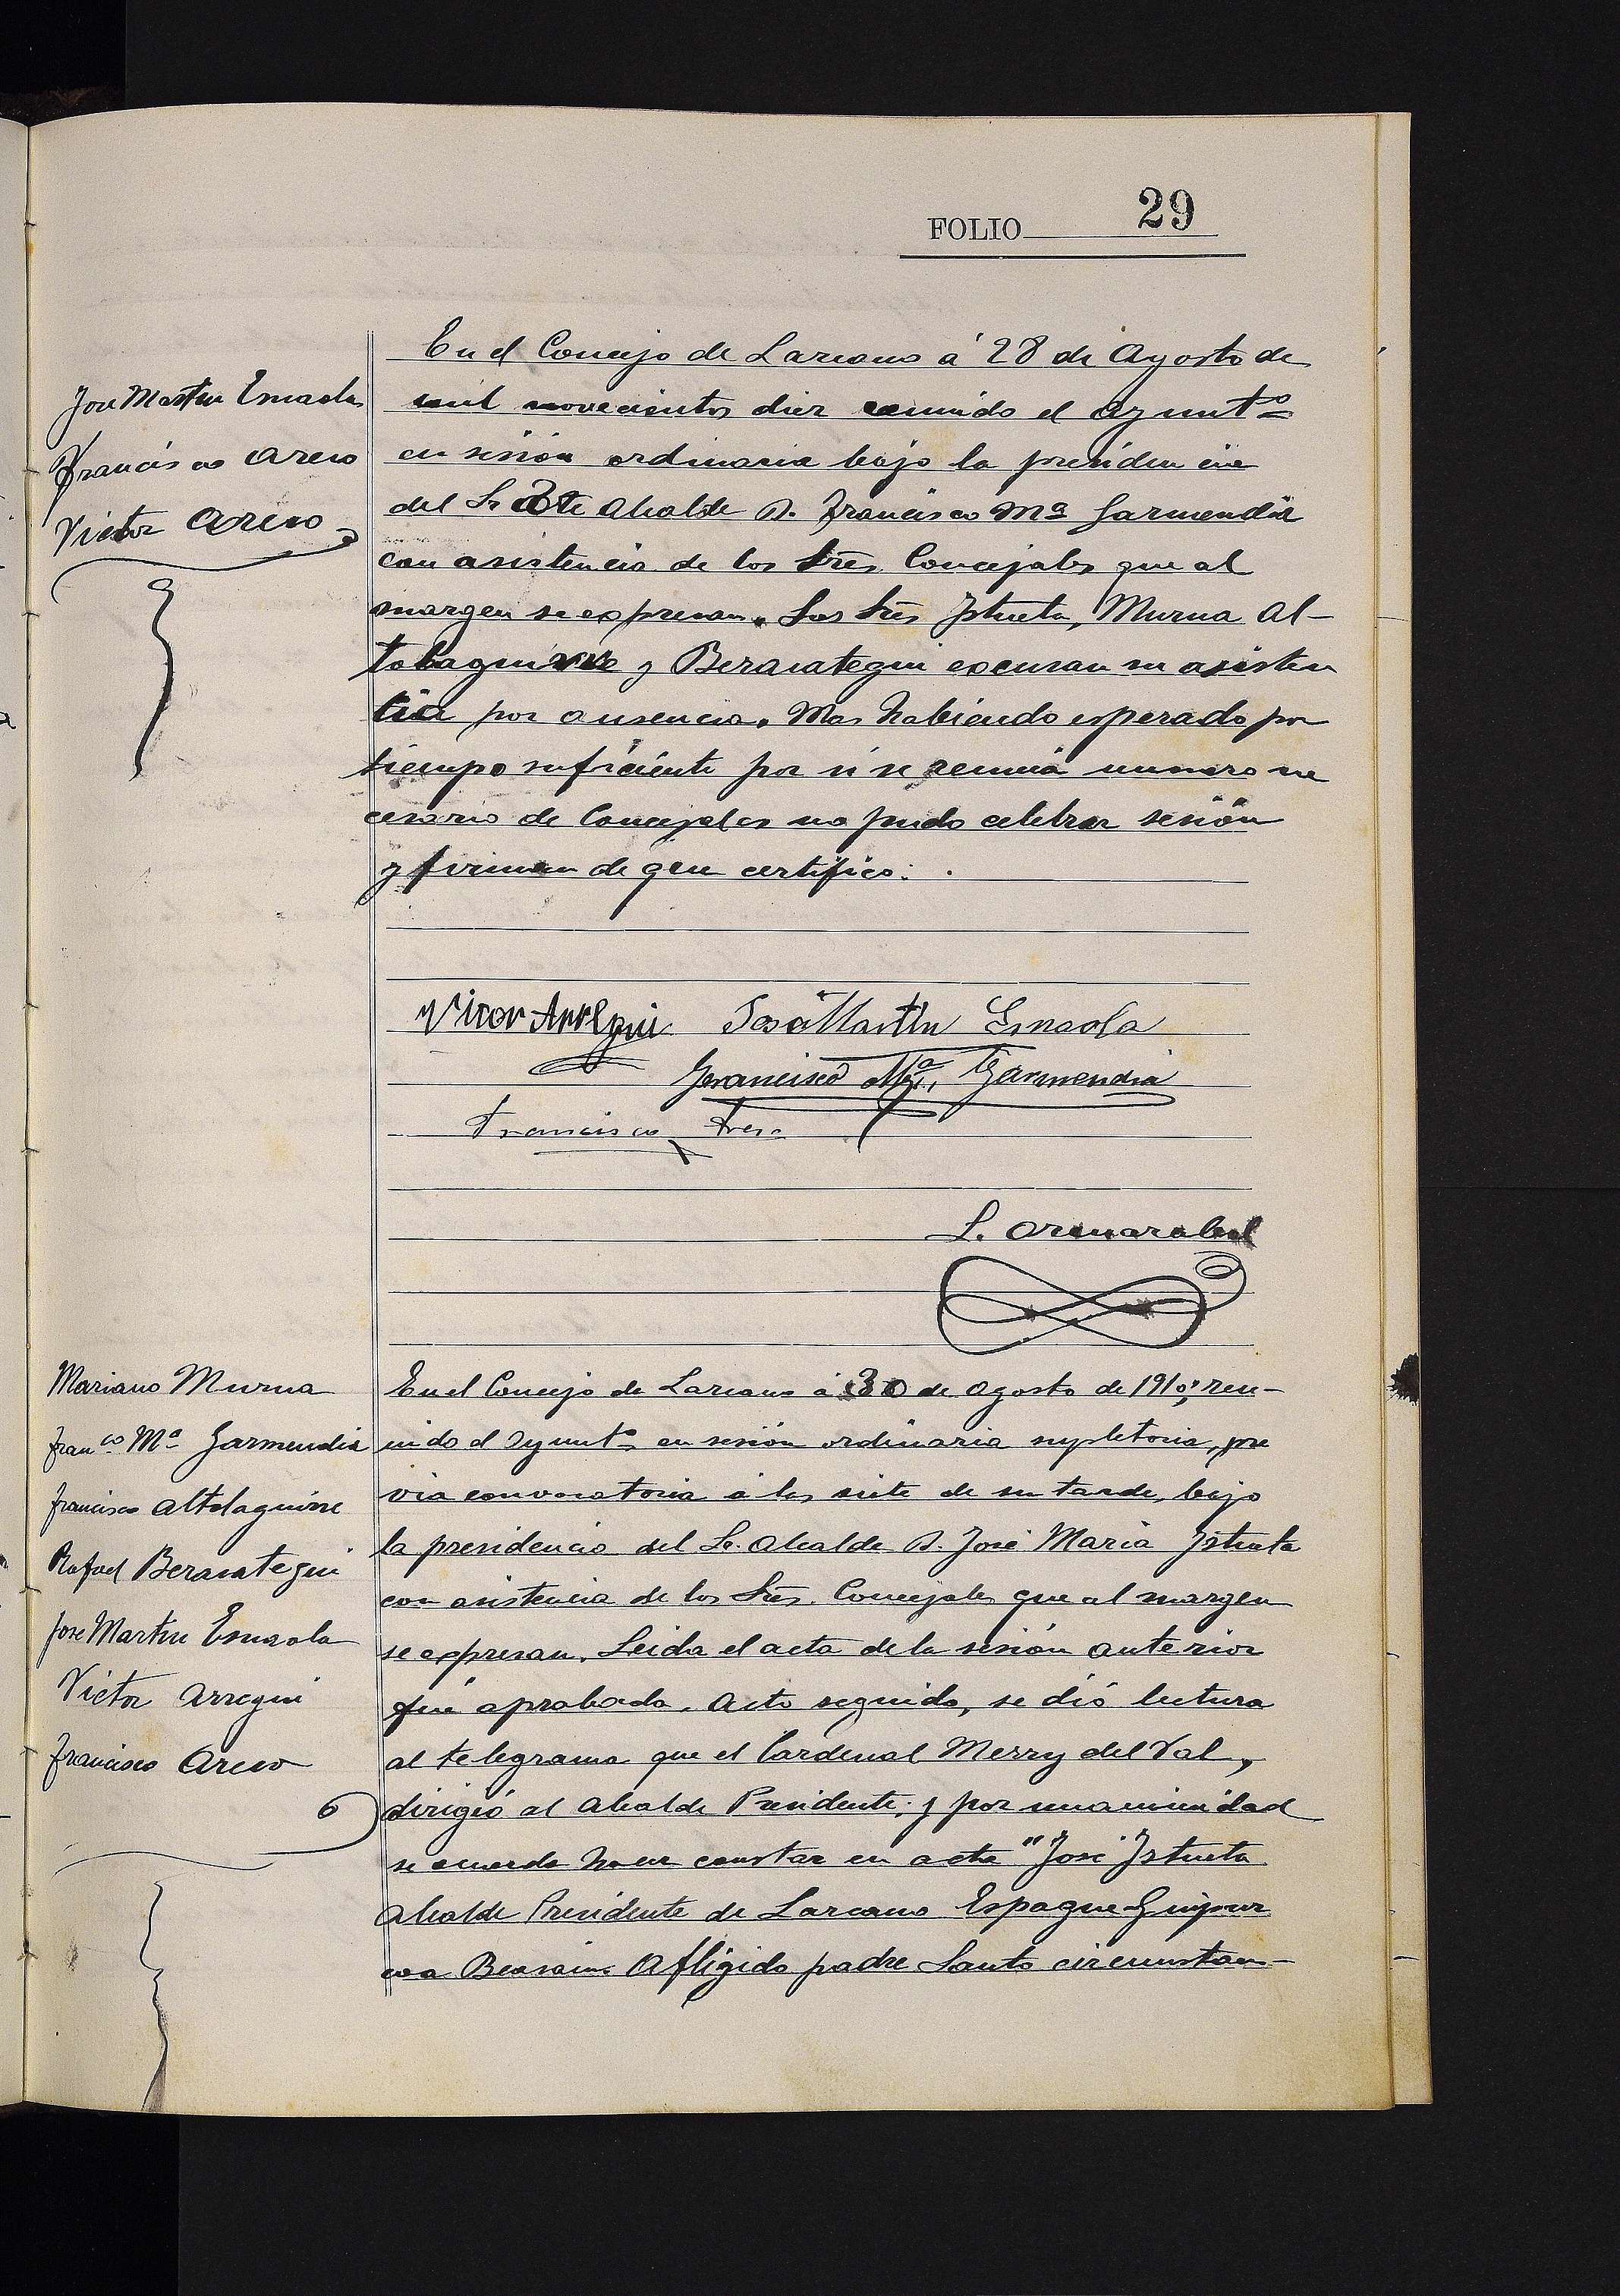 FOLIO 29
Jose Martin Esnaola
Francisco Areso
Victor Areso
En el Concejo de Lazcano á 28 de Agosto de
mil novecientos diez reunido el Ayuntº
en sesión ordinaria bajo la presidencia
del Sr Alcalde D. Francisco Mª Garmendia
con asistencia de los Sres. Concejales que al
margen se expresan. Los Sres Iztueta, Murua Al-
tolaguirre y Berasategui excusan su asisten
cia por ausencia. Mas habiendo esperado por
tiempo suficiente por si se reunia numero ne
cesario de Concejales no pudo celebrar sesión
y firman de que certifico.
Victor Arregui José Martin Esnaola
Francisco Mª Garmendia
Francisco Areso
Mariano Murua
Franco Mª Garmendia
Francisco Altolaguirre
Rafael Berasategui
Jose Martin Esnaola
Victor Arregui
Francisco Areso
En el Concejo de Lazcano á 30 de Agosto de 1910, reu-
nido el Ayuntº en sesión ordinaria supletoria, pre
via convocatoria á las siete de su tarde, bajo
la presidencia del Sr. Alcalde D. José Maria Iztueta
con asistencia de los Sres. Concejales que al margen
se expresan. Leida el acta de la sesión anterior
fué aprobada. Acto seguido, se dió lectura
al telegrama que el Cardenal Merry del Val,
dirigió al Alcalde Presidente; y por unanimidad
se acuerda hacer constar en acta "José Iztueta
Alcalde Presidente de Lazcano Espagne-Guipuz
coa Beasain. Afligido padre Santo circunstan-